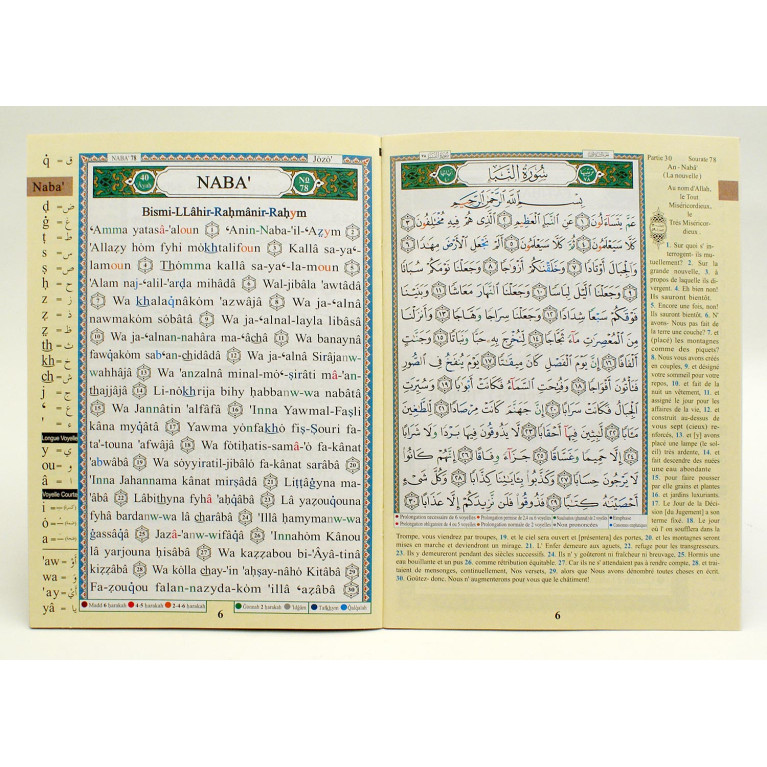 NABA' 78
Jòzò'
q̇ = ق
Naba'
40
Ayah
NABA'
NΩ
78
Bismi-LLâhir-Raḥmânir-Raḥym
ʿAmma yatasâ-'aloun 1 ʿAnin-Naba-'il-ʿAẓym 2
'Allaẓy hòm fyhi mòkhtalifoun 3 Kallâ sa-yaʿ-
lamoun 4 Thòmma kallâ sa-yaʿ-la-moun 5
'Alam naj-ʿalil-'arḍa mihâdâ 6 Wal-jibâla 'awtâdâ
7 Wa khalaqnâkòm 'azwâjâ 8 Wa ja-ʿalnâ
nawmakòm sòbâtâ 9 Wa ja-ʿalnal-layla libâsâ
10 Wa ja-ʿalnan-nahâra ma-ʿâchâ 11 Wa banaynâ
fawqakòm sabʿan-chidâdâ 12 Wa ja-ʿalnâ Sirâjanw-
wahhâjâ 13 Wa 'anzalnâ minal-mòʿ-ṣirâti mâ-'an-
thajjâjâ 14 Li-nòkhrija bihy ḥabbanw-wa nabâtâ
15 Wa Jannâtin 'alfâfâ 16 'Inna Yawmal-Faṣli
kâna myqâtâ 17 Yawma yònfakhò fiṣ-Ṣouri fa-
ta'-touna 'afwâjâ 18 Wa fòtiḥatis-samâ-'ò fa-kânat
'abwâbâ 19 Wa sòyyiratil-jibâlò fa-kânat sarâbâ 20
'Inna Jahannama kânat mirṣâdâ 21 Liṭṭâġyna ma-
'âbâ 22 Lâbithyna fyhâ 'aḥqâbâ 23 Lâ yaẓouqouna
fyhâ bardanw-wa lâ charâbâ 24 'Illâ ḥamymanw-wa
ġassâqâ 25 Jazâ-'anw-wifâqâ 26 'Innahòm Kânou
lâ yarjouna ḥisâbâ 27 Wa kaẓẓabou bi-'Âyâ-tinâ
kiẓẓâbâ 28 Wa kòlla chay-'in 'aḥṣay-nâhò Kitâbâ 29
Fa-ẓouqou falan-nazyda-kòm 'illâ ʿaẓâbâ 30
Madd 6 ḥarakah 4-5 ḥarakah 2-4-6 ḥarakah Gonnah 2 ḥarakah 'Idġâm Tafkhym Qalqalah
6
ḍ = ض
ġ = غ
ṭ = ط
s = س
ṣ = ص
ḥ = ح
z = ز
ẓ = ظ
ẓ = ذ
th = ث
kh = خ
ch = ش
j = ج
ʿ = ع
' = ء
Longue Voyelle
y =
ou=
â =
Voyelle Courte
i =
ò =
a =
'aw =
wa =
'ay =
yâ =
سُورَةُ النَّبَإِ
بِسْمِ اللَّهِ الرَّحْمَٰنِ الرَّحِيمِ
عَمَّ يَتَسَاءَلُونَ ١ عَنِ النَّبَإِ الْعَظِيمِ ٢ الَّذِي هُمْ فِيهِ مُخْتَلِفُونَ ٣
كَلَّا سَيَعْلَمُونَ ٤ ثُمَّ كَلَّا سَيَعْلَمُونَ ٥ أَلَمْ نَجْعَلِ الْأَرْضَ مِهَٰدًا ٦
وَالْجِبَالَ أَوْتَادًا ٧ وَخَلَقْنَٰكُمْ أَزْوَٰجًا ٨ وَجَعَلْنَا نَوْمَكُمْ سُبَاتًا
٩ وَجَعَلْنَا الَّيْلَ لِبَاسًا ١٠ وَجَعَلْنَا النَّهَارَ مَعَاشًا ١١ وَبَنَيْنَا
فَوْقَكُمْ سَبْعًا شِدَادًا ١٢ وَجَعَلْنَا سِرَاجًا وَهَّاجًا ١٣ وَأَنزَلْنَا
مِنَ الْمُعْصِرَٰتِ مَاءً ثَجَّاجًا ١٤ لِّنُخْرِجَ بِهِ حَبًّا وَنَبَاتًا ١٥ وَجَنَّٰتٍ
أَلْفَافًا ١٦ إِنَّ يَوْمَ الْفَصْلِ كَانَ مِيقَٰتًا ١٧ يَوْمَ يُنفَخُ فِي الصُّورِ
فَتَأْتُونَ أَفْوَاجًا ١٨ وَفُتِحَتِ السَّمَاءُ فَكَانَتْ أَبْوَٰبًا ١٩ وَسُيِّرَتِ
الْجِبَالُ فَكَانَتْ سَرَابًا ٢٠ إِنَّ جَهَنَّمَ كَانَتْ مِرْصَادًا ٢١ لِّلطَّٰغِينَ
مَـَٔابًا ٢٢ لَّٰبِثِينَ فِيهَا أَحْقَابًا ٢٣ لَّا يَذُوقُونَ فِيهَا بَرْدًا وَلَا شَرَابًا
٢٤ إِلَّا حَمِيمًا وَغَسَّاقًا ٢٥ جَزَاءً وِفَاقًا ٢٦ إِنَّهُمْ كَانُوا
لَا يَرْجُونَ حِسَابًا ٢٧ وَكَذَّبُوا بِـَٔايَٰتِنَا كِذَّابًا ٢٨ وَكُلَّ شَيْءٍ
أَحْصَيْنَٰهُ كِتَٰبًا ٢٩ فَذُوقُوا فَلَن نَّزِيدَكُمْ إِلَّا عَذَابًا ٣٠
Partie 30 Sourate 78
An - Nabâ'
(La nouvelle)
Au nom d'Allah,
le Tout
Miséricordieux,
le
Très Miséricor-
dieux .
1. Sur quoi s' in-
terrogent- ils mu-
tuellement? 2. Sur la
grande nouvelle, 3. à
propos de laquelle ils di-
vergent. 4. Eh bien non!
Ils sauront bientôt.
5. Encore une fois, non!
Ils sauront bientôt. 6. N'
avons- Nous pas fait de
la terre une couche? 7. et
(placé) les montagnes
comme des piquets?
8. Nous vous avons créés
en couples, 9. et désigné
votre sommeil pour votre
repos, 10. et fait de la
nuit un vêtement, 11. et
assigné le jour pour les
affaires de la vie, 12. et
construit au-dessus de
vous sept (cieux) ren-
forcés, 13. et [y] avons
placé une lampe (le so-
leil) très ardente, 14. et
fait descendre des nuées
une eau abondante
15. pour faire pousser
par elle grains et plantes
16. et jardins luxuriants.
17. Le Jour de la Déci-
sion [du Jugement] a son
terme fixé. 18. Le jour
où l' on soufflera dans la
Trompe, vous viendrez par troupes, 19. et le ciel sera ouvert et [présentera] des portes, 20. et les montagnes seront
mises en marche et deviendront un mirage. 21. L' Enfer demeure aux aguets, 22. refuge pour les transgresseurs.
23. Ils y demeuront pendant des siècles successifs. 24. Ils n' y goûteront ni fraîcheur ni breuvage, 25. Hormis une
eau bouillante et un pus 26. comme rétribution équitable. 27. Car ils ne s' attendaient pas à rendre compte, 28. et trai-
taient de mensonges, continuellement, Nos versets, 29. alors que Nous avons dénombré toutes choses en écrit.
30. Goûtez- donc. Nous n' augmenterons pour vous que le châtiment!
6